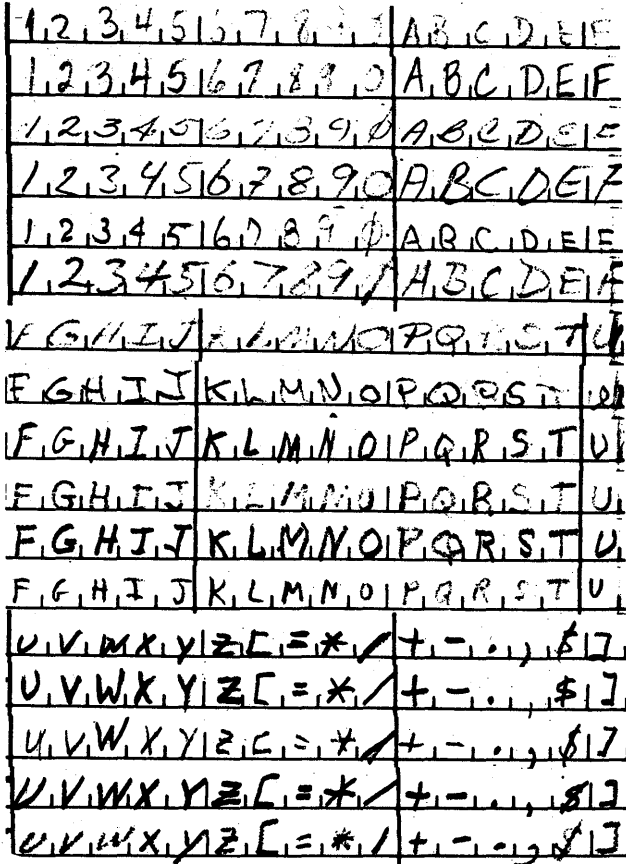 1 2 3 4 5 6 7 8 A B C D E F
1 2 3 4 5 6 7 8 9 0 A B C D E F
1 2 3 4 5 6 7 8 9 0 A B C D E E
1 2 3 4 5 6 7 8 9 0 A B C D E F
1 2 3 4 5 6 7 8 9 0 A B C D E E
1 2 3 4 5 6 7 8 9 A B C D E F
F G H I J L M N O P Q S T U
F G H I J K L M N O P Q R S T
F G H I J K L M N O P Q R S T U
F G H I J K L M N O P Q R S T U
F G H I J K L M N O P Q R S T U
F G H I J K L M N O P Q R S T U
U V W X Y Z [ = * / + - . , $ ]
U V W X Y Z [ = * / + - . , $ ]
U V W X Y Z [ = * / + - . , $ ]
U V W X Y Z [ = * / + - . , $ ]
U V W X Y Z [ = * / + - . , $ ]